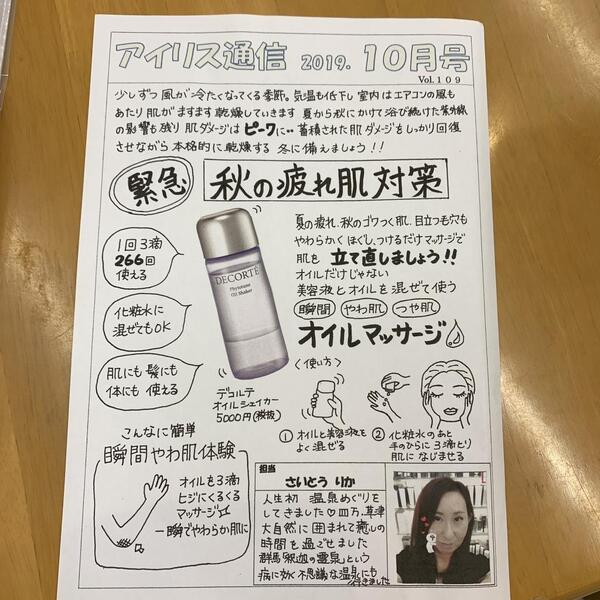 アイリス通信 2019. 10月号
Vol.109
少しずつ 風が冷たくなってくる季節。気温も低下し 室内はエアコンの風も
あたり肌がますます乾燥していきます 夏から秋にかけて浴び続けた紫外線
の影響も残り 肌ダメージは ピークに・・蓄積された肌ダメージをしっかり回復
させながら 本格的に乾燥する 冬に備えましょう!!
緊急
秋の疲れ肌対策
1回3滴
266回
使える
化粧水に
混ぜてもOK
肌にも 髪にも
体にも 使える
DECORTÉ
Phytotune
Oil Shaker
デコルテ
オイルシェイカー
5000円(税抜)
夏の疲れ、秋のゴワつく肌、目立つ毛穴も
やわらかくほぐし、つけるだけマッサージで
肌を 立て直しましょう!!
オイルだけじゃない
美容液とオイルを混ぜて使う
瞬間 やわ肌 つや肌
オイルマッサージ
〈使い方〉
① オイルと美容液を
よく混ぜる
② 化粧水のあと
手のひらに3滴とり
肌になじませる
こんなに簡単
瞬間やわ肌体験
オイルを3滴
ヒジにくるくる
マッサージ
一瞬でやわらか肌に
担当
さいとう りか
人生初 温泉めぐりを
してきました♡四万、草津
大自然に囲まれて癒しの
時間を過ごせました
群馬「釈迦の霊泉」という
病に効く不思議な温泉にも
行きました